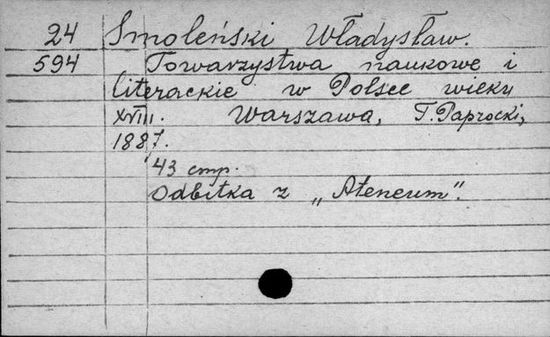 24 Smoleński Władysław.
594 Towarzystwa naukowe i
literackie w Polsce wieku
XVIII. Warszawa, T. Paprocki,
1887.
43 стр.
Odbitka z „Ateneum".